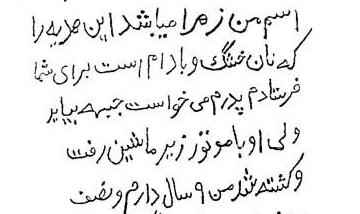 اسم من زمرا میباشد این هدیه را
که نان خشک و بادام است برای شما
فرستادم پدرم می خواست جبهه بیاید
ولی او با موتور زیر ماشین رفت
و کشته شد من ۹ سال دارم و نصف